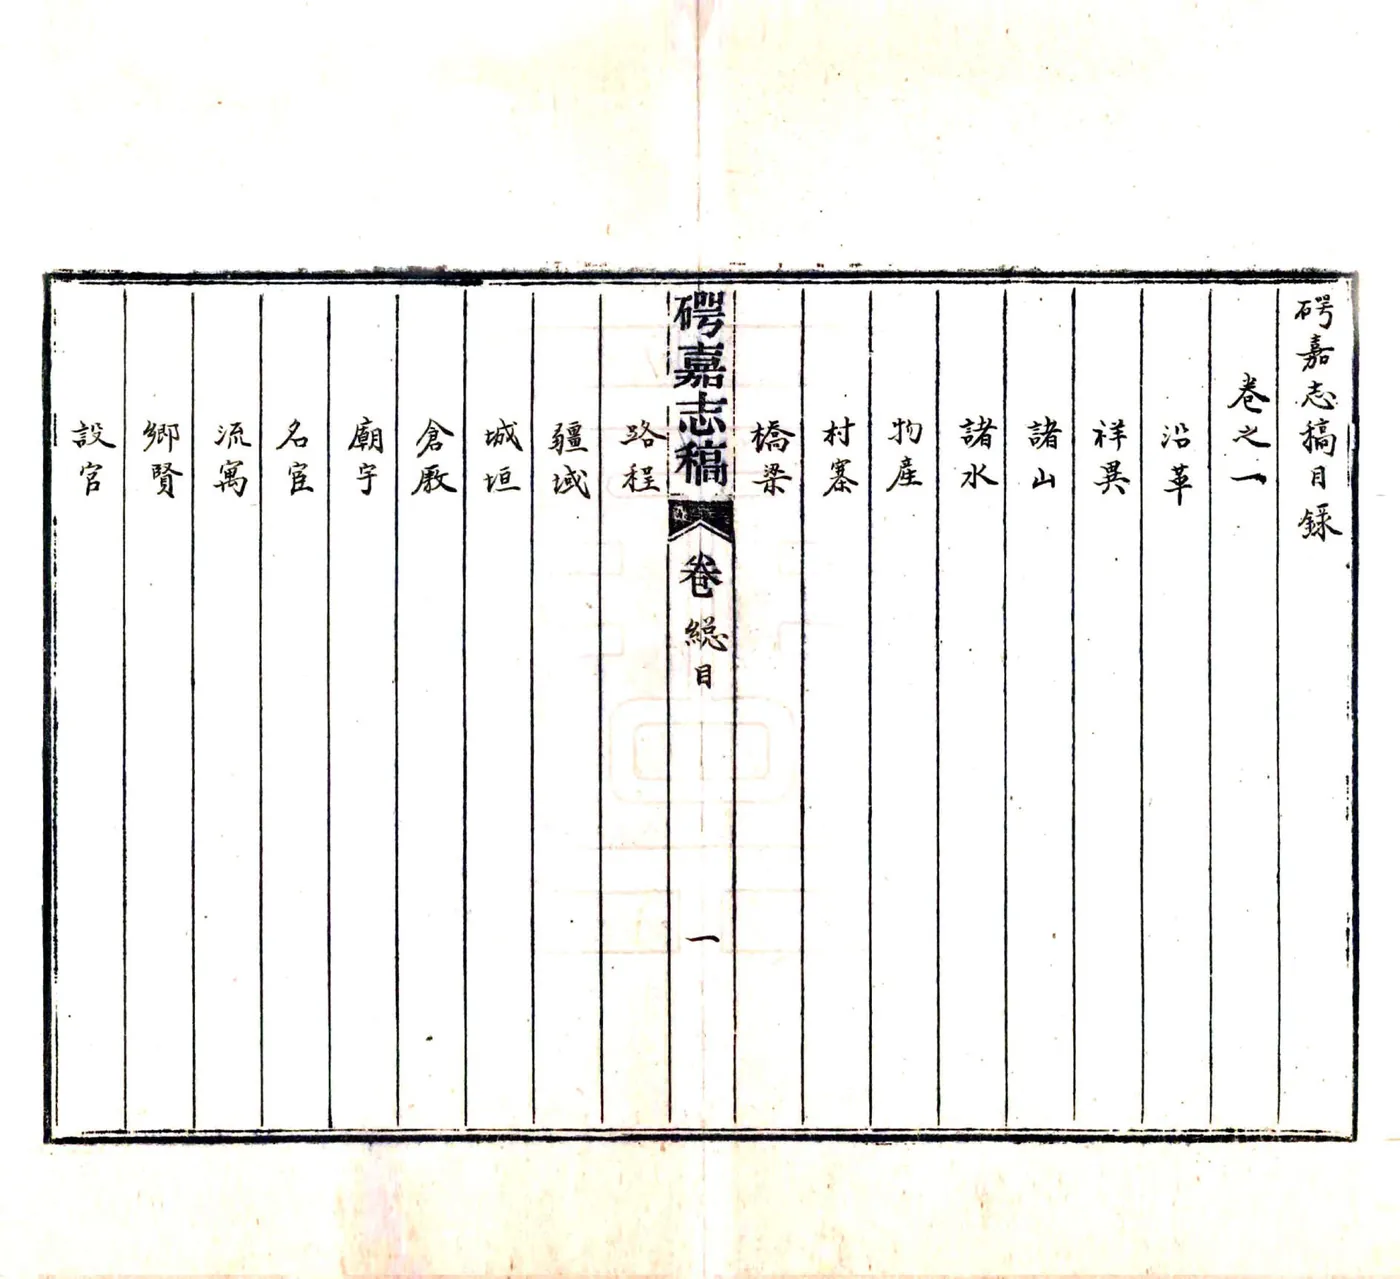 碍嘉志稿目錄
卷之一
沿革
祥異
諸山
諸水
物產
村寨
橋梁
碍嘉志稿
卷總目
一
路程
疆域
城垣
倉厫
廟宇
名宦
流寓
鄉賢
設官